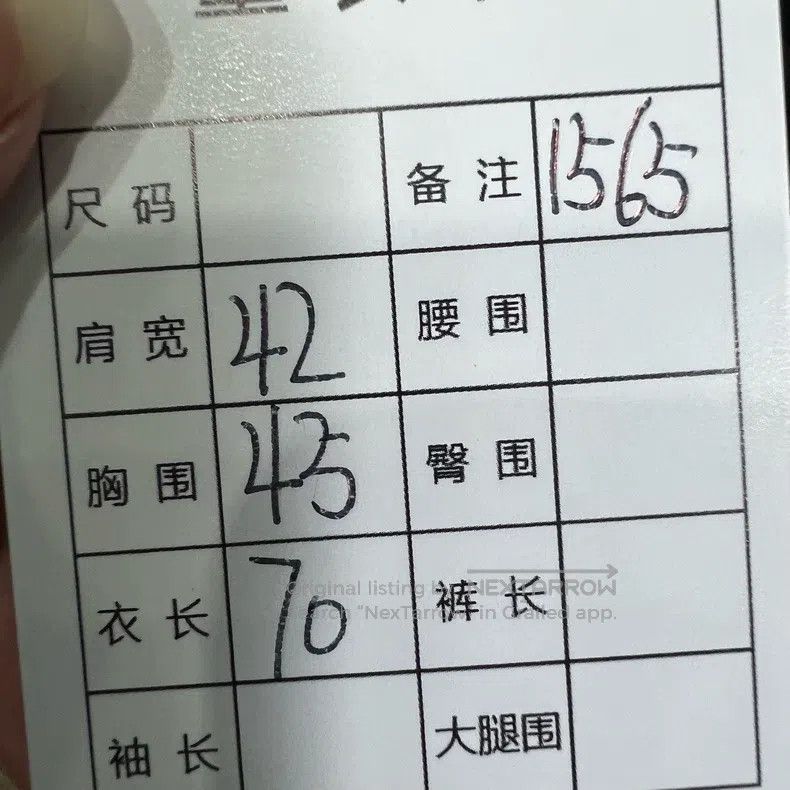 尺码 备注 1565
肩宽 42 腰围
胸围 45 臀围
衣长 70 裤长
Original listing by NEXTARROW
Search "NexTarrow" in Grailed app.
袖长 大腿围